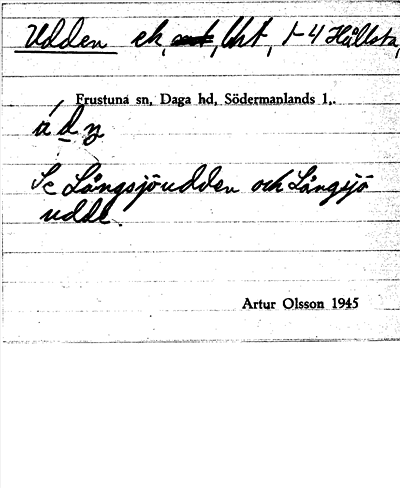 Udden ek, Urt, 1-4 Hållsta,
Frustuna sn, Daga hd, Södermanlands l,.
Se Långsjöudden och Långsjö
udde.
Artur Olsson 1945